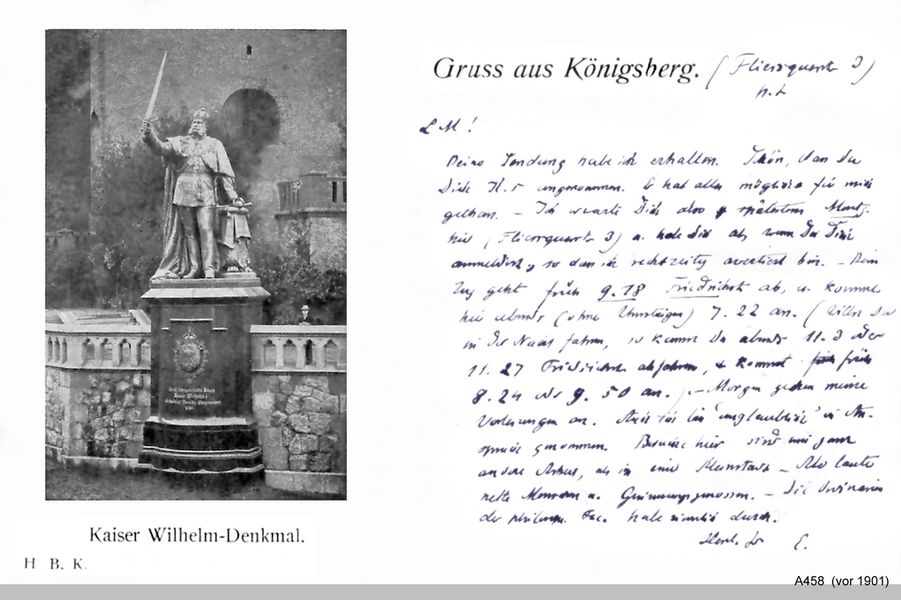 Gruss aus Königsberg. (Fliessquerstr 3)
p. t
L M!
Deine Sendung habe ich erhalten. Schön, dass Du
Dich angenommen. Er hat alles mögliche für mich
gethan. – Ich erwarte Dich also spätestens
hier (Fliessquerstr 3) u. hole Dich ab, wenn Du Dich
anmeldest, so dass ich rechtzeitig avertiert bin. – Dein
Zug geht früh 9.18 Friedrichstr ab, u. kommt
hier abends (ohne Umsteigen) 7.22 an. (Willst Du
in der Nacht fahren, so kannst Du abends 11.3 oder
11.27 Friedrichstr abfahren, u kommst früh
8.24 oder 9.50 an.) – Morgen gehen meine
Vorlesungen an. Bin "unglaublich" in An-
spruch genommen. Besuche hier sind eine ganz
andere Arbeit, als in einer Kleinstadt – Aber lauter
nette Menschen u. Gesinnungsgenossen. – Die Ordinarien
der philosoph. Fac. habe ich durch.
Herzl. Gr E.
Kaiser Wilhelm-Denkmal.
H B. K.
A458 (vor 1901)